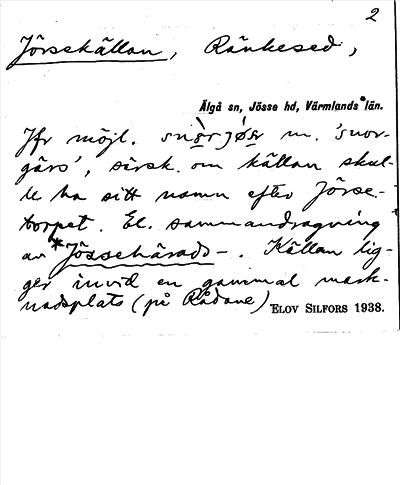 2
Jörsekällan, Ränkesed,
Älgå sn, Jösse hd, Värmlands län.
Jfr möjl. m. 'snor-
gärs', särsk. om källan skul-
le ha sitt namn efter Jörse-
torpet. El. sammandragning
av *Jössehärads-. Källan lig-
ger invid en gammal mark-
nadsplats (på Rådane)
ELOV SILFORS 1938.